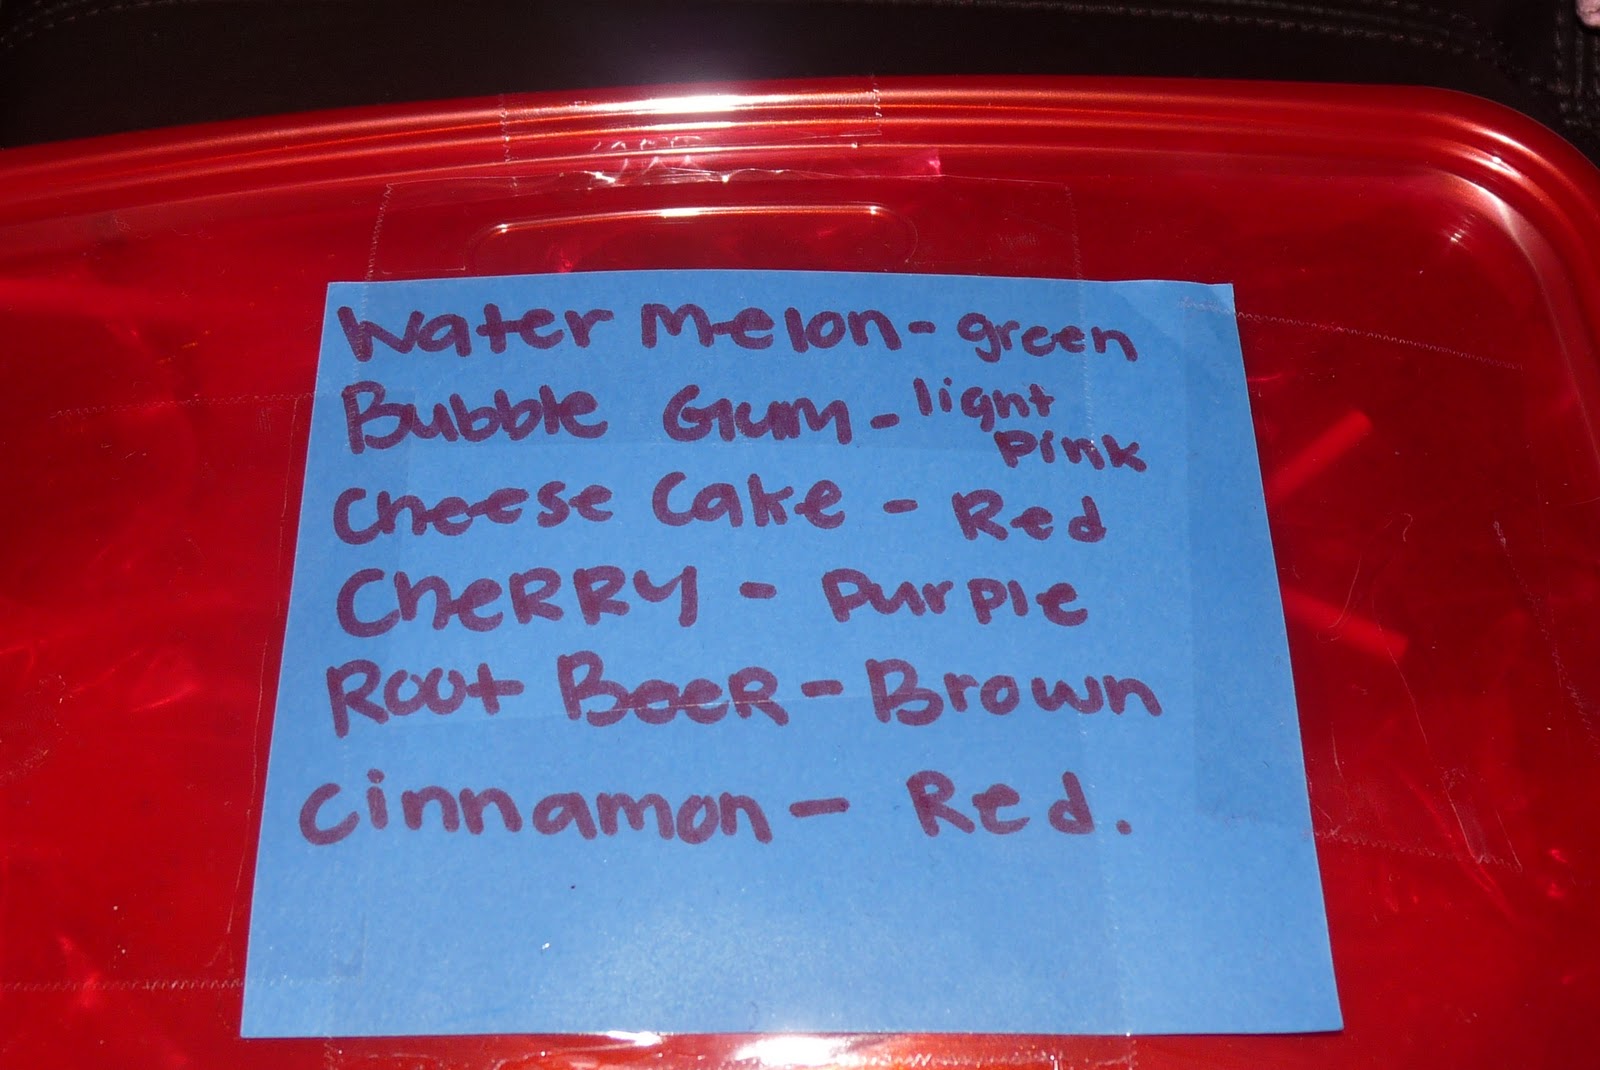 Water Melon - green
Bubble Gum - light
pink
Cheese Cake - Red
CheRRY - purple
Root BeeR - Brown
cinnamon - Red.